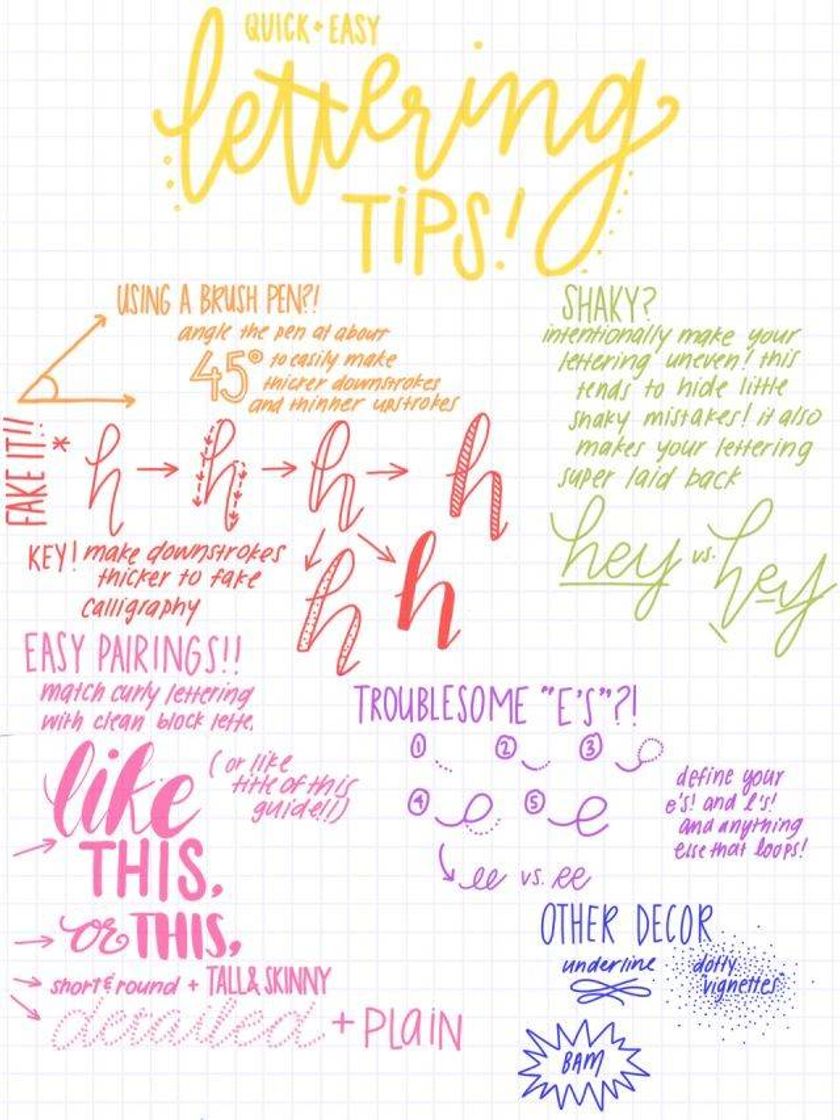 QUICK + EASY
lettering
TIPS!
USING A BRUSH PEN?!
angle the pen at about
45° to easily make
thicker downstrokes
and thinner upstrokes
SHAKY?
intentionally make your
lettering uneven! this
tends to hide little
shaky mistakes! it also
makes your lettering
super laid back
hey vs. hey
FAKE IT!!
*
h h h h
h h
KEY! make downstrokes
thicker to fake
calligraphy
EASY PAIRINGS!!
match curly lettering
with clean block lette.
like
(or like
title of this
guide!!)
THIS,
or THIS,
short & round + TALL & SKINNY
detailed + PLAiN
TROUBLESOME "E'S"?!
1 2 3
4 5
ee vs. ee
define your
e's! and l's!
and anything
else that loops!
OTHER DECOR
underline
dotty
"vignettes"
BAM